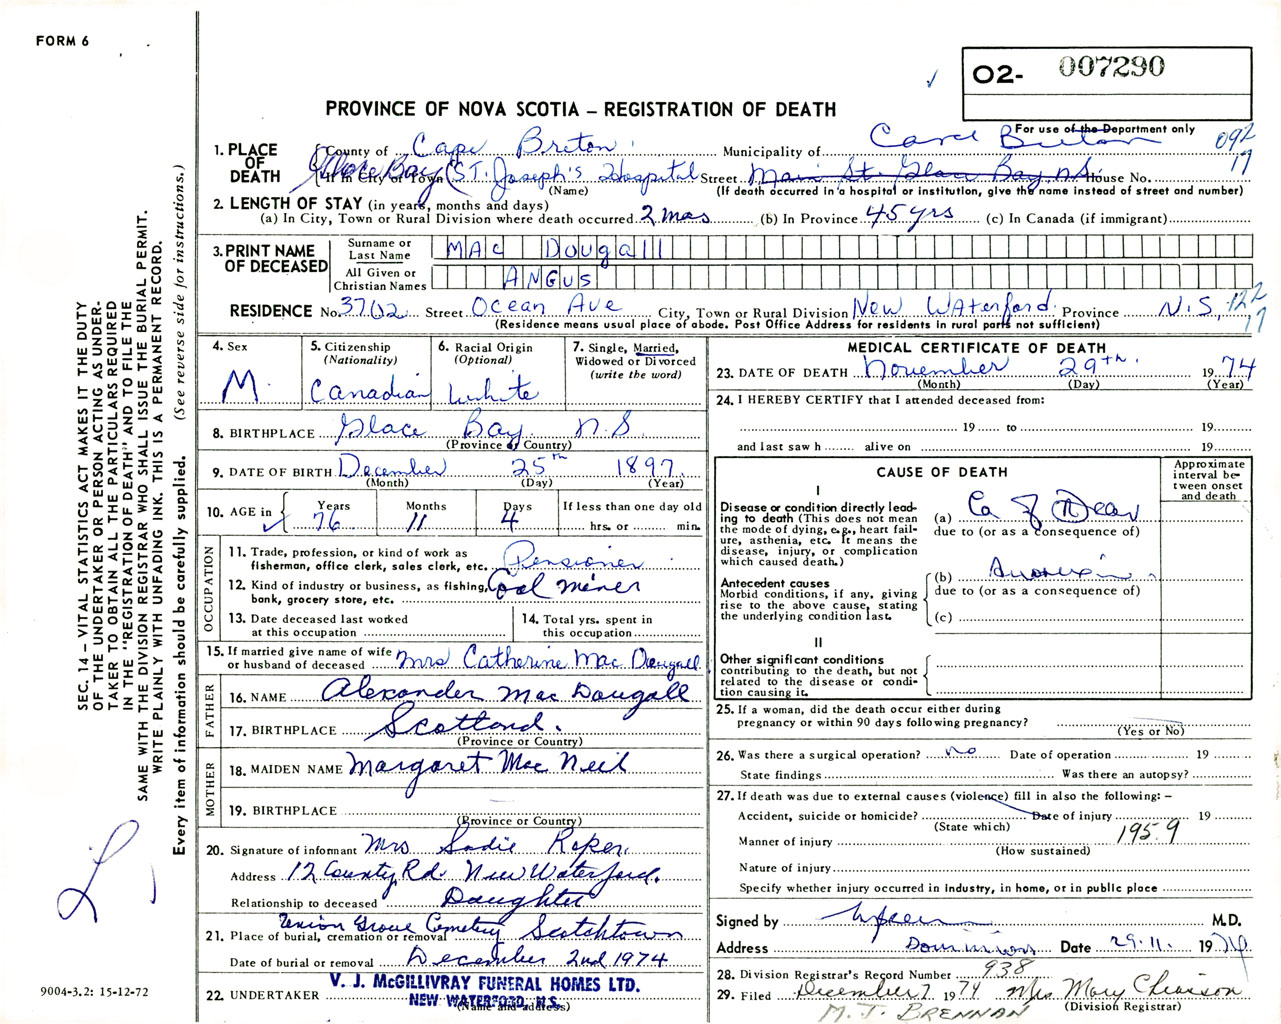 FORM 6
O2- 007290
PROVINCE OF NOVA SCOTIA – REGISTRATION OF DEATH
For use of the Department only
092
17
1. PLACE OF DEATH
County of Cape Breton Municipality of Cape Breton
Glace Bay
If in City or Town (St. Joseph's Hospital Street Main St. Glace Bay, N.S. House No.
(Name) (If death occurred in a hospital or institution, give the name instead of street and number)
2. LENGTH OF STAY (in years, months and days)
(a) In City, Town or Rural Division where death occurred 2 mos (b) In Province 45 yrs (c) In Canada (if immigrant)
3. PRINT NAME OF DECEASED
Surname or Last Name MAC Dougall
All Given or Christian Names ANGUS
RESIDENCE No. 3702 Street Ocean Ave City, Town or Rural Division New Waterford Province N.S. 122
17
(Residence means usual place of abode. Post Office Address for residents in rural parts not sufficient)
4. Sex
M.
5. Citizenship
(Nationality)
Canadian
6. Racial Origin
(Optional)
White
7. Single, Married,
Widowed or Divorced
(write the word)
8. BIRTHPLACE Glace Bay N.S.
(Province or Country)
9. DATE OF BIRTH December 25th 1897
(Month) (Day) (Year)
10. AGE in
Years Months Days If less than one day old
76 11 4 hrs. or min.
OCCUPATION
11. Trade, profession, or kind of work as
fisherman, office clerk, sales clerk, etc. Pensioner
12. Kind of industry or business, as fishing, Coal miner
bank, grocery store, etc.
13. Date deceased last worked
at this occupation
14. Total yrs. spent in
this occupation
15. If married give name of wife
or husband of deceased Mrs Catherine Mac Dougall
FATHER
16. NAME Alexander Mac Dougall
17. BIRTHPLACE Scotland.
(Province or Country)
MOTHER
18. MAIDEN NAME Margaret Mac Neil
19. BIRTHPLACE
(Province or Country)
20. Signature of informant Mrs Sadie Roper
Address 12 County Rd. New Waterford.
Relationship to deceased Daughter
Union Grove Cemetery
21. Place of burial, cremation or removal Scotchtown
Date of burial or removal December 2nd 1974
22. UNDERTAKER
V. J. McGILLIVRAY FUNERAL HOMES LTD.
NEW WATERFORD, N.S.
(Name and address)
MEDICAL CERTIFICATE OF DEATH
23. DATE OF DEATH November 29th 1974
(Month) (Day) (Year)
24. I HEREBY CERTIFY that I attended deceased from:
19 to 19
and last saw h alive on 19
CAUSE OF DEATH
Approximate interval between onset and death
I
Disease or condition directly leading to death (This does not mean the mode of dying, e.g., heart failure, asthenia, etc. It means the disease, injury, or complication which caused death.)
(a) Ca of
due to (or as a consequence of)
Antecedent causes
Morbid conditions, if any, giving rise to the above cause, stating the underlying condition last.
(b) Anorexia
due to (or as a consequence of)
(c)
II
Other significant conditions
contributing to the death, but not related to the disease or condition causing it.
25. If a woman, did the death occur either during
pregnancy or within 90 days following pregnancy?
(Yes or No)
26. Was there a surgical operation? no Date of operation 19
State findings Was there an autopsy?
27. If death was due to external causes (violence) fill in also the following: –
Accident, suicide or homicide? Date of injury 19
(State which)
1959
Manner of injury
(How sustained)
Nature of injury
Specify whether injury occurred in industry, in home, or in public place
Signed by M.D.
Address Dominion Date 29.11. 1974
28. Division Registrar's Record Number 938
29. Filed December 7 1974 Mrs Mary Chiasson
(Division Registrar)
M. J. BRENNAN
SEC. 14 – VITAL STATISTICS ACT MAKES IT THE DUTY
OF THE UNDERTAKER OR PERSON ACTING AS UNDER-
TAKER TO OBTAIN ALL THE PARTICULARS REQUIRED
IN THE "REGISTRATION OF DEATH" AND TO FILE THE
SAME WITH THE DIVISION REGISTRAR WHO SHALL ISSUE THE BURIAL PERMIT.
WRITE PLAINLY WITH UNFADING INK. THIS IS A PERMANENT RECORD.
Every item of information should be carefully supplied. (See reverse side for instructions.)
9004-3.2: 15-12-72